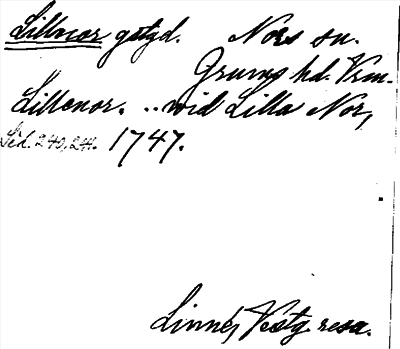 Lillnor gstgd. Nors sn.
Grums hd. Vrm.
Lillenor. .. wid Lilla Nor,
Sid. 240, 241. 1747.
Linné, Vestg. resa.